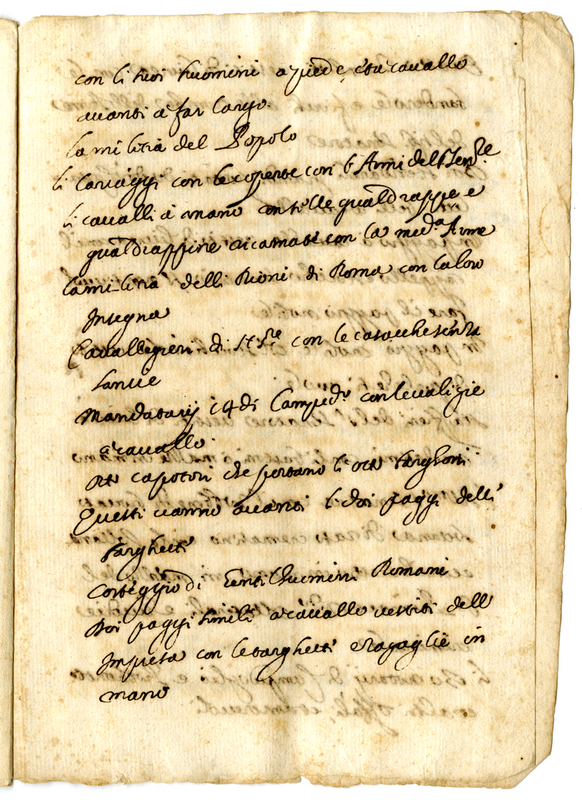 con li suoi huomini a piede, et a cavallo
avanti a far largo.
La militia del Popolo
li cariaggi con le coperte con l'Armi dell'
li cavalli à mano con selle gualdrappe e
gualdrappine ricamate con la med.a Arme
la militia delli Rioni di Roma con la loro
Insegna
Cavalleggieri di N. Sre con le casacche senza
lancie
Mandatarij 14 di Campid.o con le valigie
à cavallo.
otto capotori che portano li otto targhoni
Questi vanno avanti li doi paggi delli
targhetti
Corteggio di Gentilhuomini Romani
Doi paggi simili a cavallo vestiti dell'
Impresa con le targhetti e in
mano